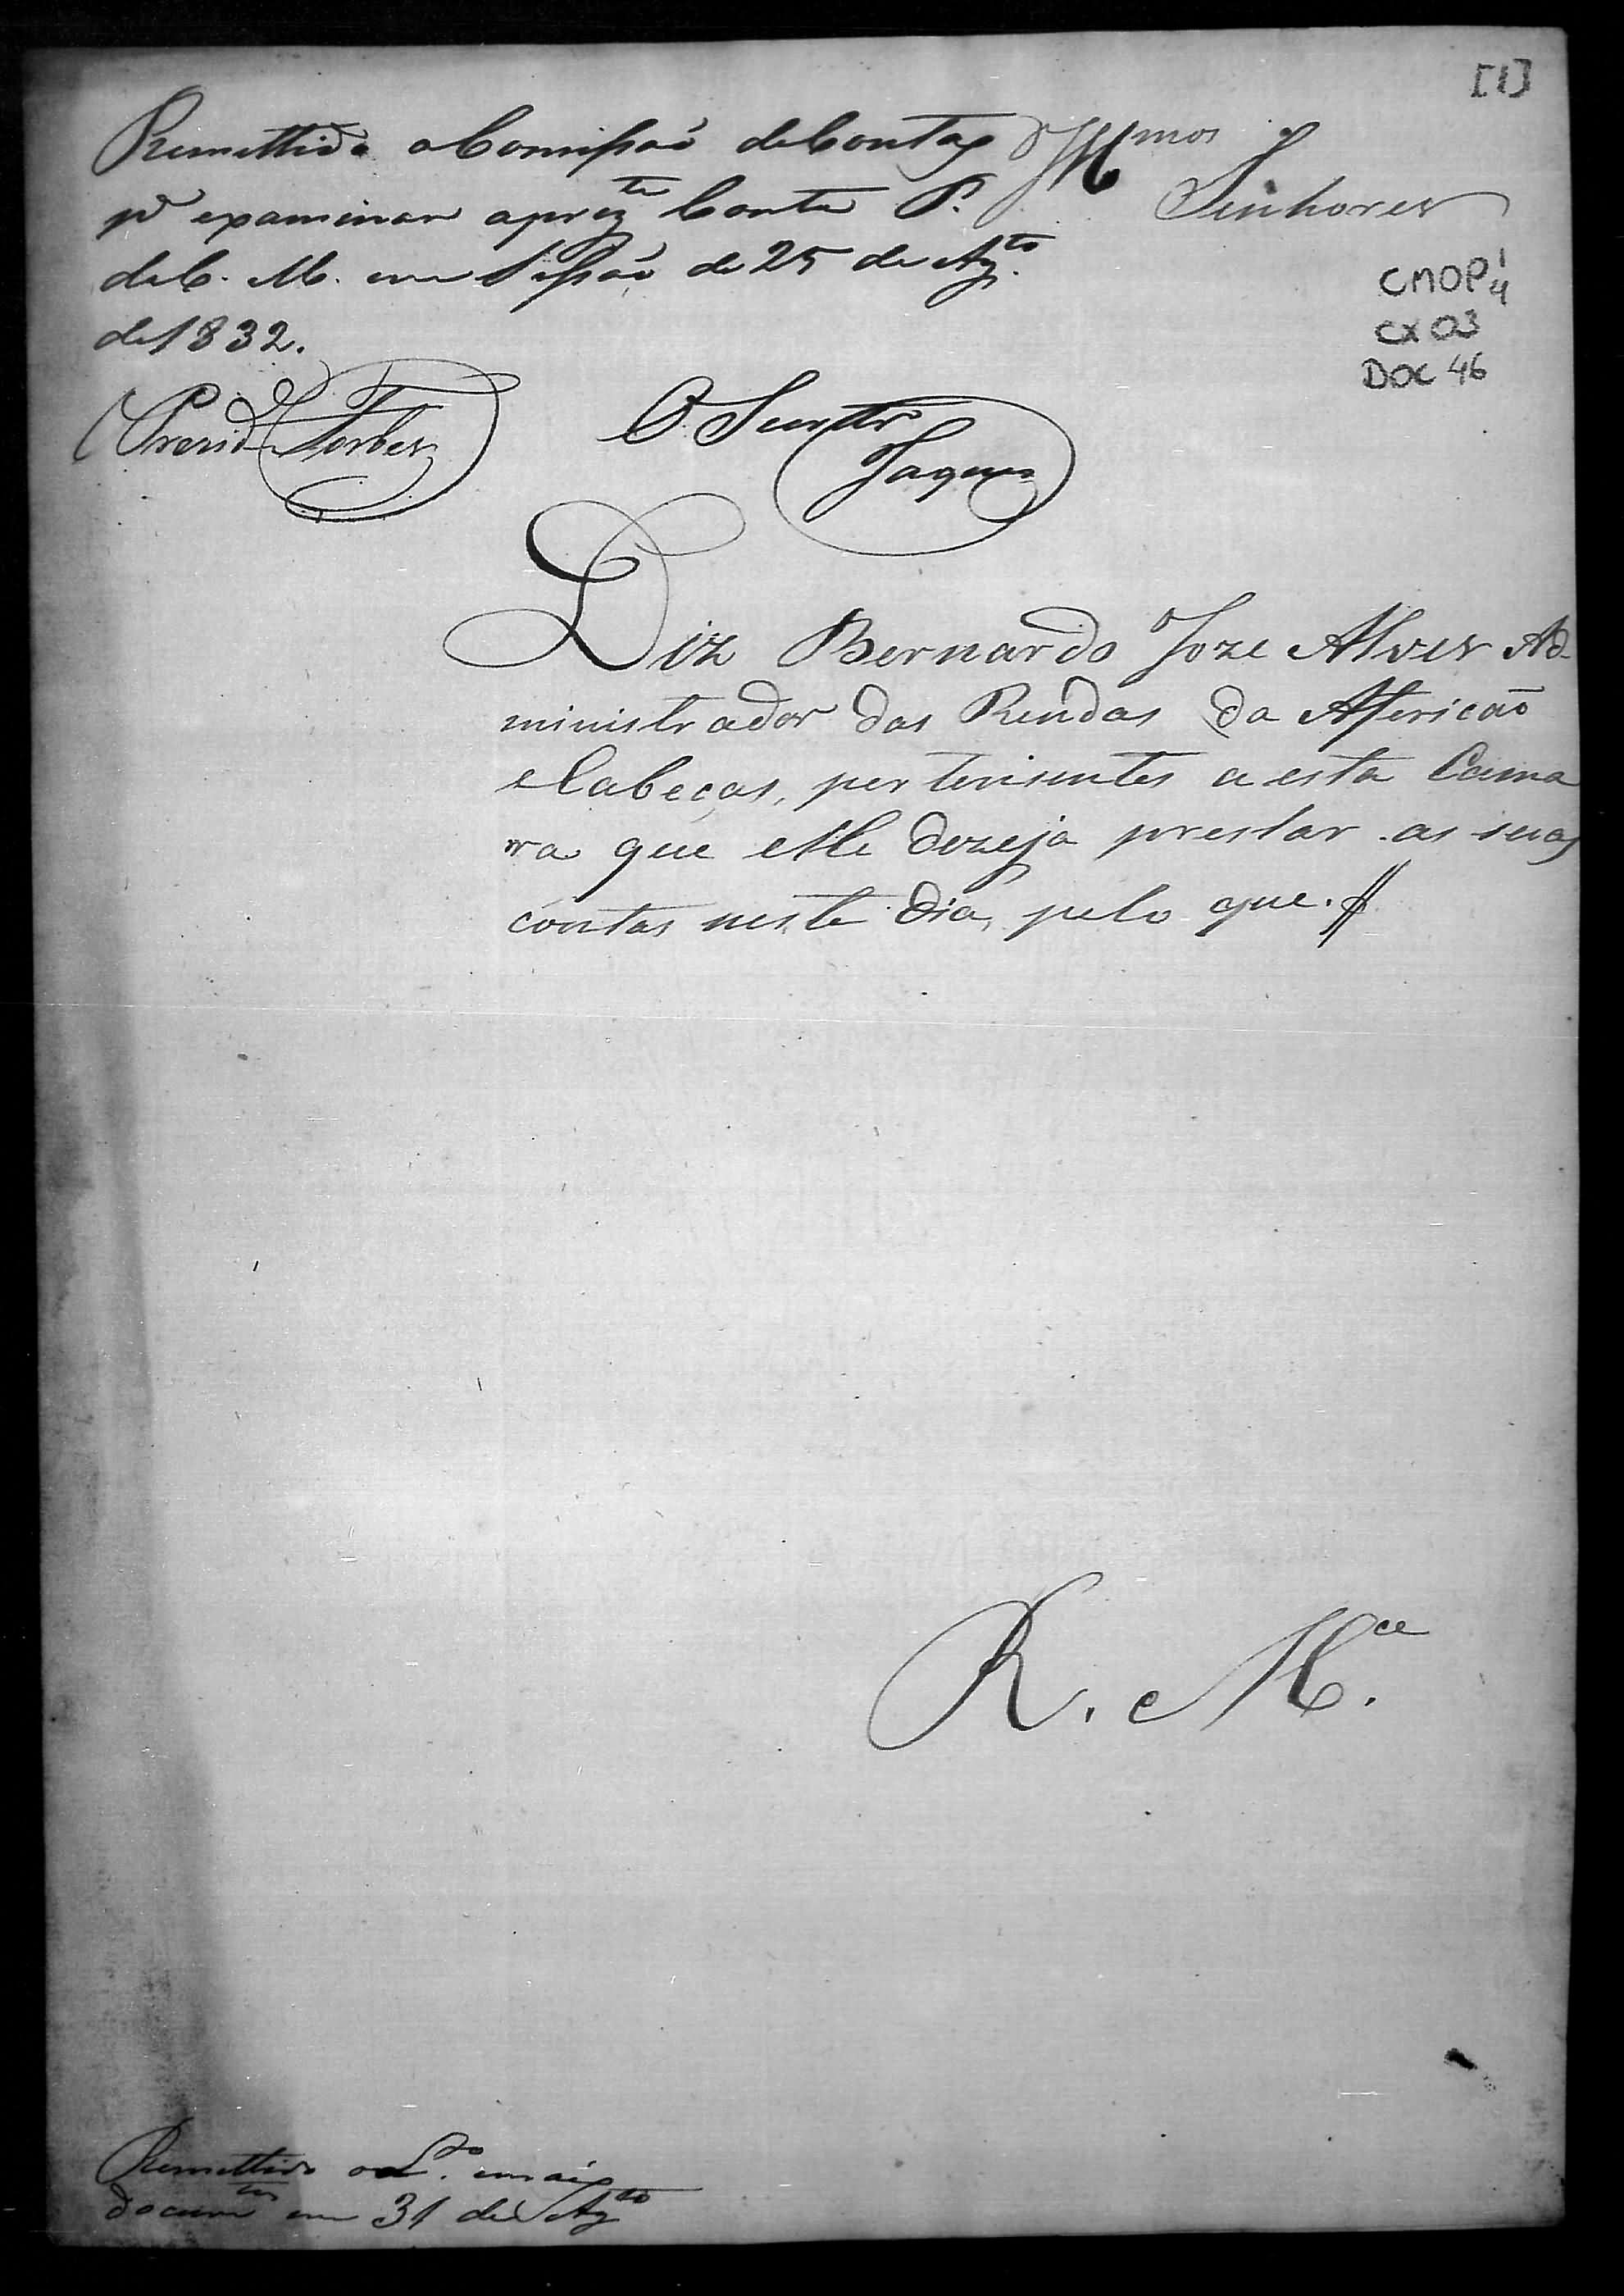 [1]
Remettida a Comissaõ de Contas
pª examinar aprezte Conta P.
da C. M. em Sessaõ de 25 de Agto
de 1832.
Presid Forbes
O Secretr
Jaques
Illmos
Senhores
CMOP 1/4
CX 03
DOC 46
Diz Bernardo Joze Alves Ad-
ministrador das Rendas da Afericaõ
e Cabeças, pertensentes a esta Cama
ra que elle dezeja prestar as suas
contas neste dia, pelo que.
R. Mce.
Remettido o L.º emais
documtos em 31 de Agto